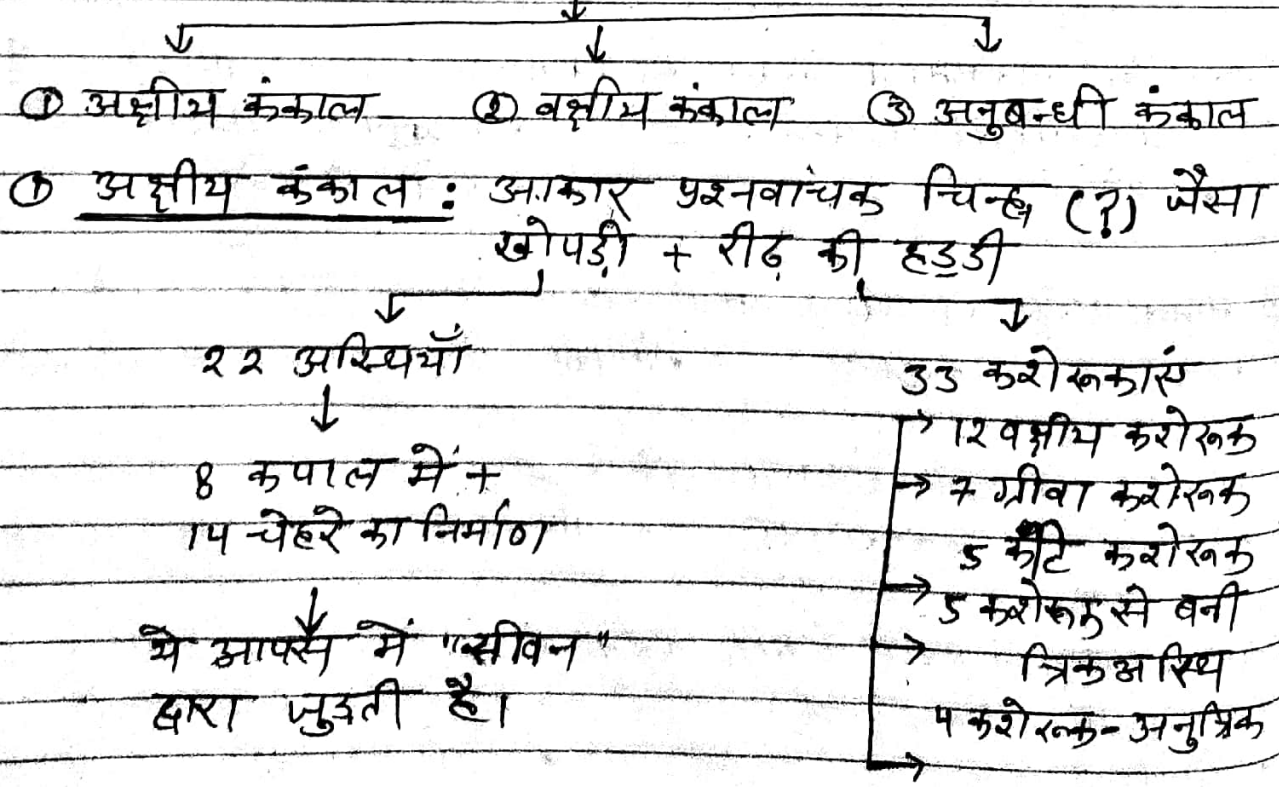 ① अक्षीय कंकाल ② वक्षीय कंकाल ③ अनुबन्धी कंकाल
① अक्षीय कंकाल : आकार प्रश्नवाचक चिन्ह (?) जैसा
खोपड़ी + रीढ़ की हड्डी
22 अस्थियाँ
8 कपाल में +
14 चेहरे का निर्माण
ये आपस में "सीवन"
द्वारा जुड़ती है।
33 कशेरूकाएं
12 वक्षीय कशेरूक
7 ग्रीवा कशेरूक
5 कटि कशेरूक
5 कशेरूक से बनी
त्रिकअस्थि
4 कशेरूक - अनुत्रिक